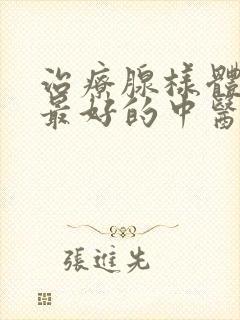 治療腺樣體
最好的中醫
張進先